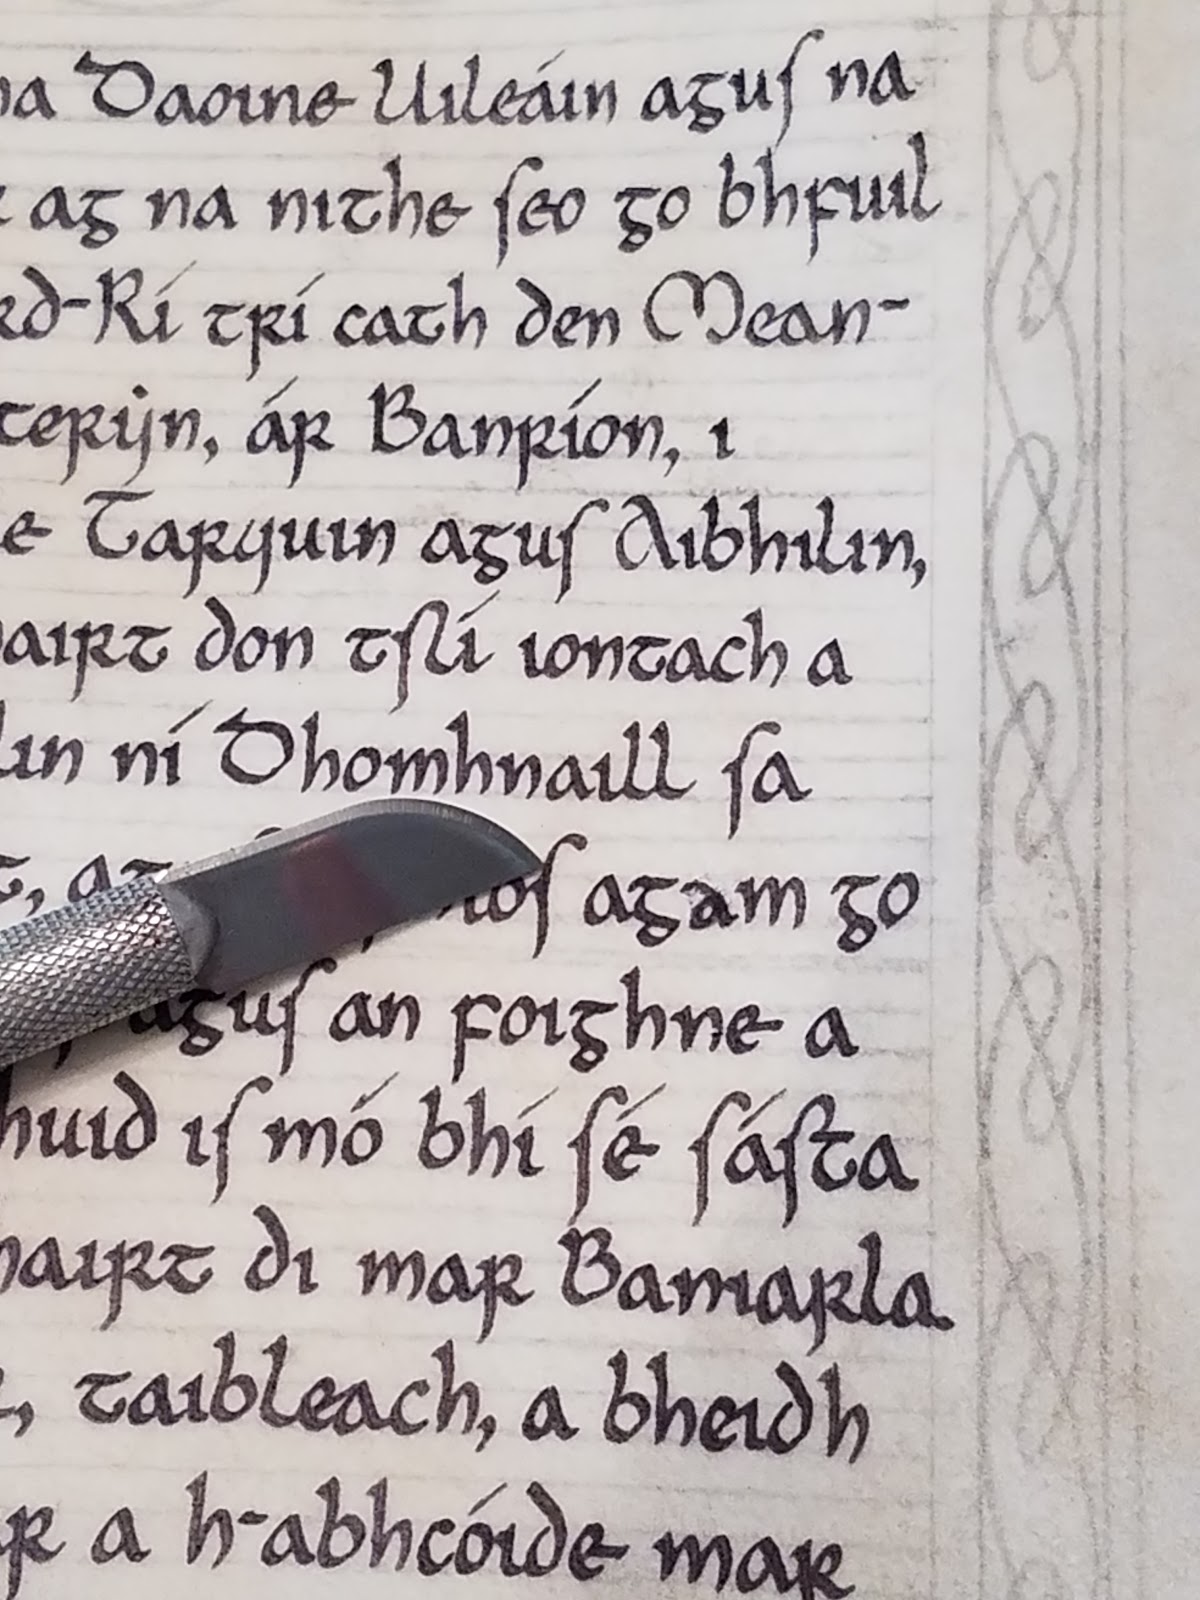 na Daoine Uileáin agus na
ag na nithe seo go bhfuil
rd-Rí trí cath den Mean-
terijn, ár Banríon, i
e Tarquin agus Aibhilin,
airt don tslí iontach a
lin ní Dhomhnaill sa
agam go
agus an foighne a
huid is mó bhí sé sásta
hairt di mar Bamarla
, taibleach, a bheidh
ar a h-abhcóide mar